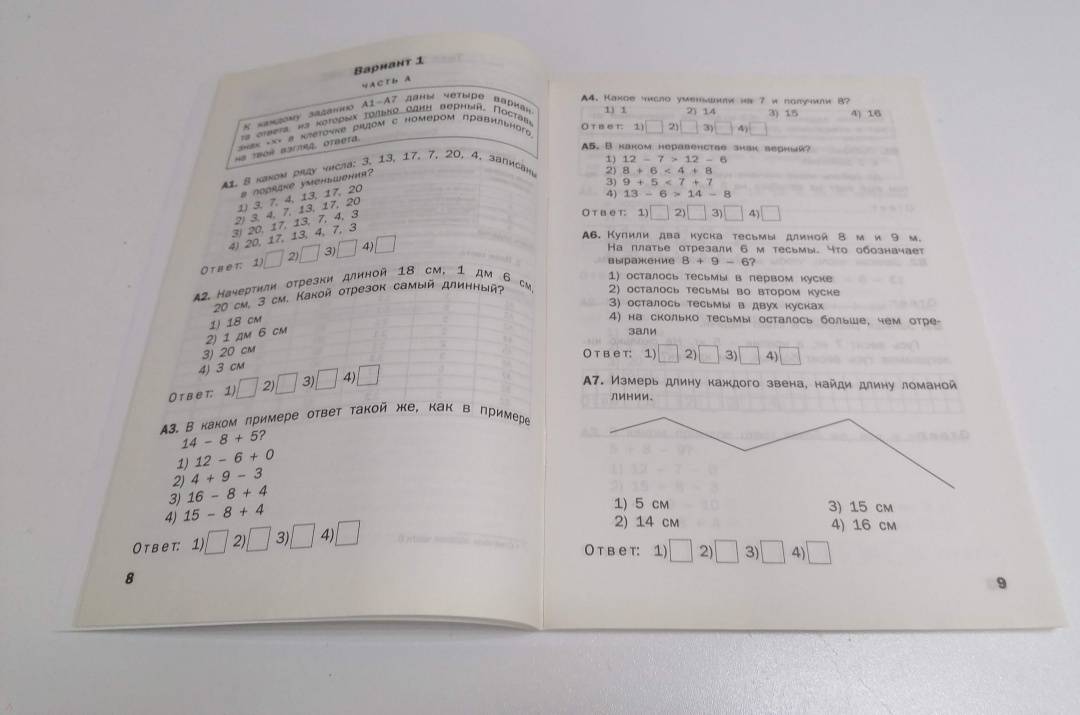 Вариант 1
ЧАСТЬ А
К каждому заданию А1–А7 даны четыре вариан-
та ответа, из которых только один верный. Поставь
знак «×» в клеточке рядом с номером правильного,
на твой взгляд, ответа.
А1. В каком ряду числа: 3, 13, 17, 7, 20, 4, записаны
в порядке уменьшения?
1) 3, 7, 4, 13, 17, 20
2) 3, 4, 7, 13, 17, 20
3) 20, 17, 13, 7, 4, 3
4) 20, 17, 13, 4, 7, 3
Ответ: 1) 2) 3) 4)
А2. Начертили отрезки длиной 18 см, 1 дм 6 см,
20 см, 3 см. Какой отрезок самый длинный?
1) 18 см
2) 1 дм 6 см
3) 20 см
4) 3 см
Ответ: 1) 2) 3) 4)
А3. В каком примере ответ такой же, как в примере
14 – 8 + 5?
1) 12 – 6 + 0
2) 4 + 9 – 3
3) 16 – 8 + 4
4) 15 – 8 + 4
Ответ: 1) 2) 3) 4)
8
А4. Какое число уменьшили на 7 и получили 8?
1) 1 2) 14 3) 15 4) 16
Ответ: 1) 2) 3) 4)
А5. В каком неравенстве знак верный?
1) 12 – 7 > 12 – 6
2) 8 + 6 < 4 + 8
3) 9 + 5 < 7 + 7
4) 13 – 6 > 14 – 8
Ответ: 1) 2) 3) 4)
А6. Купили два куска тесьмы длиной 8 м и 9 м.
На платье отрезали 6 м тесьмы. Что обозначает
выражение 8 + 9 – 6?
1) осталось тесьмы в первом куске
2) осталось тесьмы во втором куске
3) осталось тесьмы в двух кусках
4) на сколько тесьмы осталось больше, чем отре-
зали
Ответ: 1) 2) 3) 4)
А7. Измерь длину каждого звена, найди длину ломаной
линии.
1) 5 см 3) 15 см
2) 14 см 4) 16 см
Ответ: 1) 2) 3) 4)
9